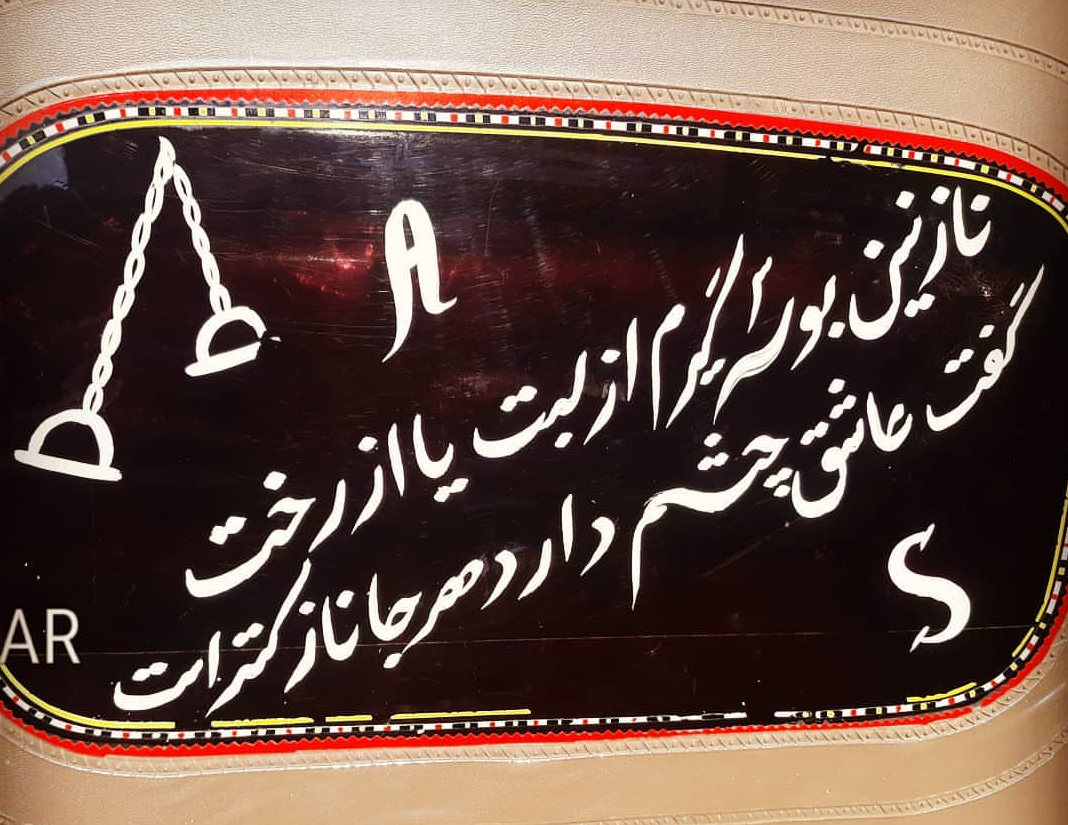 A
نازنین بوسرا گیرم از لبت یا از رخت
گفت عاشق چشم دارد هرجا نازکتر است
S
AR